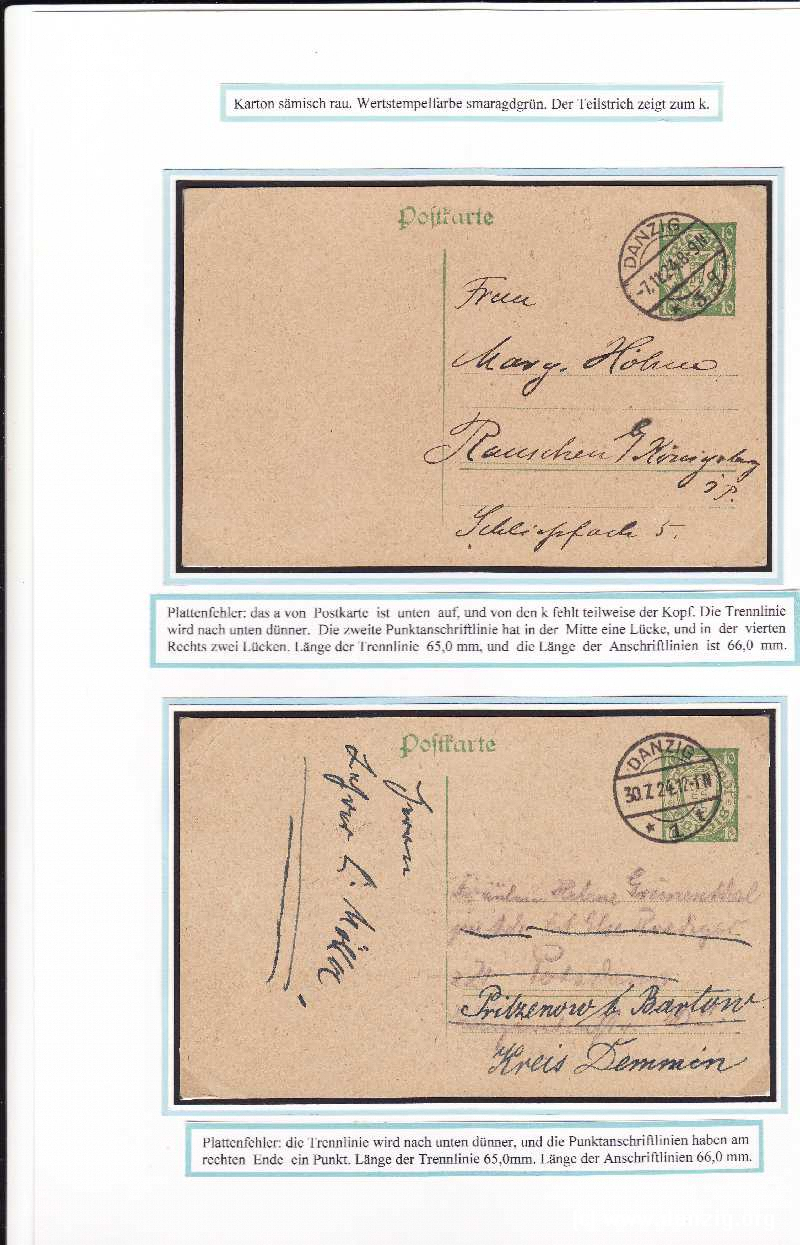 Karton sämisch rau. Wertstempelfarbe smaragdgrün. Der Teilstrich zeigt zum k.
Postkarte
DANZIG
10 10
-7.11.24.8-9N
* 5 g
10 10
Frau
Marg. Höhne
Rauschen b/Königsberg
i/P.
Schliessfach 5.
Plattenfehler: das a von Postkarte ist unten auf, und von den k fehlt teilweise der Kopf. Die Trennlinie
wird nach unten dünner. Die zweite Punktanschriftlinie hat in der Mitte eine Lücke, und in der vierten
Rechts zwei Lücken. Länge der Trennlinie 65,0 mm, und die Länge der Anschriftlinien ist 66,0 mm.
Postkarte
DANZIG
10
30.7.24.12-1N
* 1 t
10
Herrn
Fräulein Helene Grünenthal
Pritzenow b. Bartow
Kreis Demmin
Plattenfehler: die Trennlinie wird nach unten dünner, und die Punktanschriftlinien haben am
rechten Ende ein Punkt. Länge der Trennlinie 65,0mm. Länge der Anschriftlinien 66,0 mm.